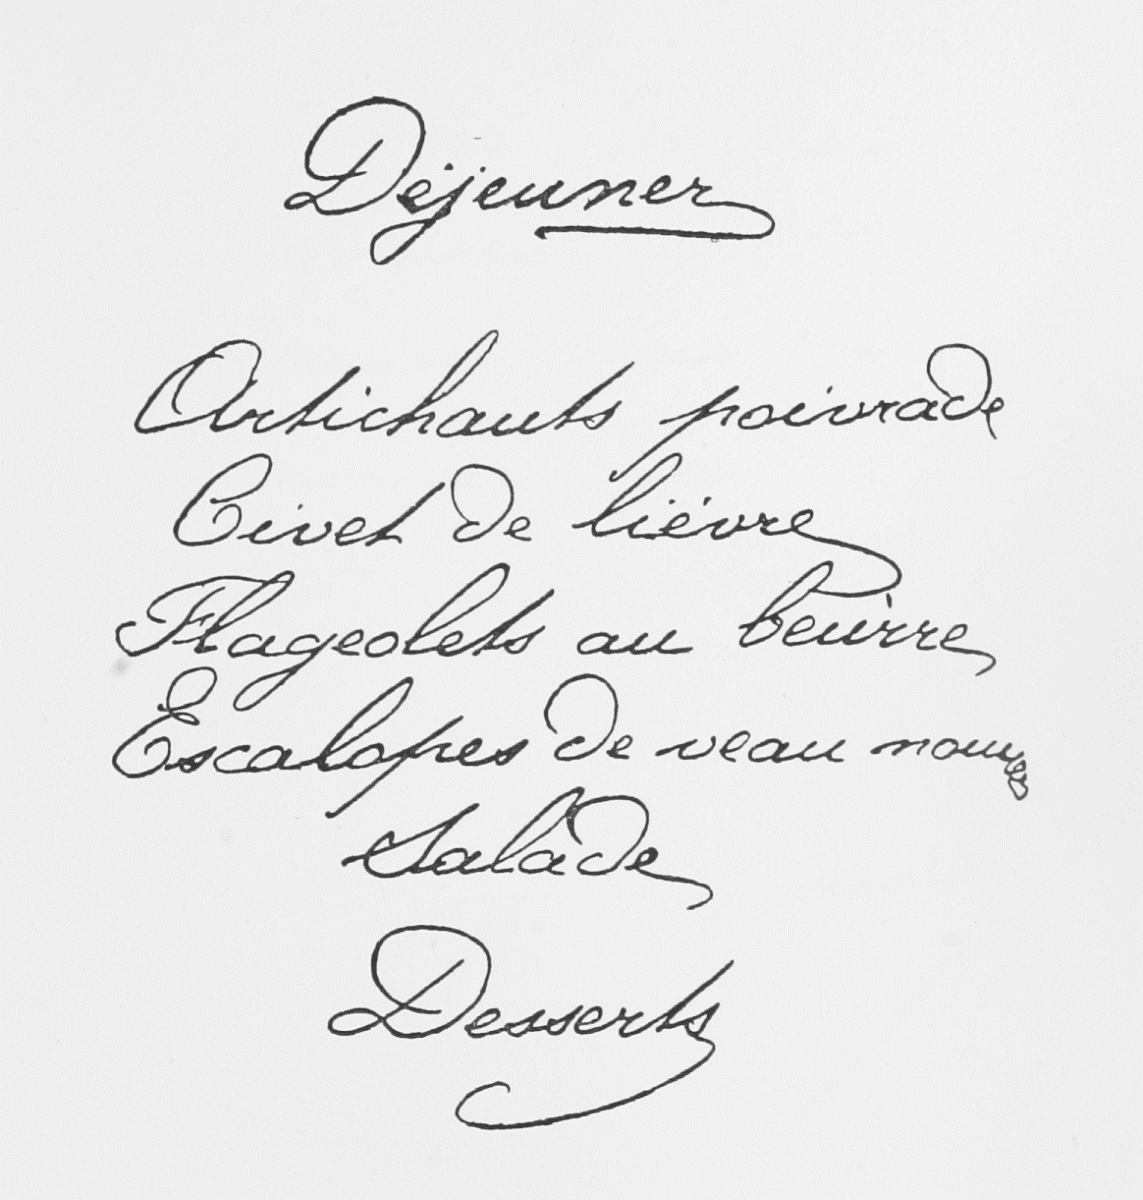 Déjeuner
Artichauts poivrade
Civet de lièvre
Flageolets au beurre
Escalopes de veau
Salade
Desserts